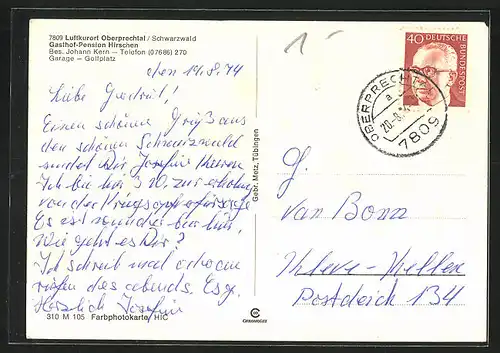 7809 Luftkurort Oberprechtal / Schwarzwald
Gasthof-Pension Hirschen
Bes. Johann Kern – Telefon (07686) 270
Garage – Golfplatz
den 19.8.74
Liebe Gertrud!
Einen schönen Gruß aus
den schönen Schwarzwald
sendet Dir Josefin
Ich bin hir zur erholung
von der Kriegsopferfürsorge
Es ist wunderbar hir,
Wie geht es Dir?
Ich schreib mal
des abends. Es
Herzlich Josefin
310 M 105 Farbphotokarte HIC
Gebr. Metz, Tübingen
1-
40 DEUTSCHE BUNDESPOST
OBERPRECHTAL
a
20-8
7809
G.
van Bonn
Kleve-Kellen
Postdeich 134